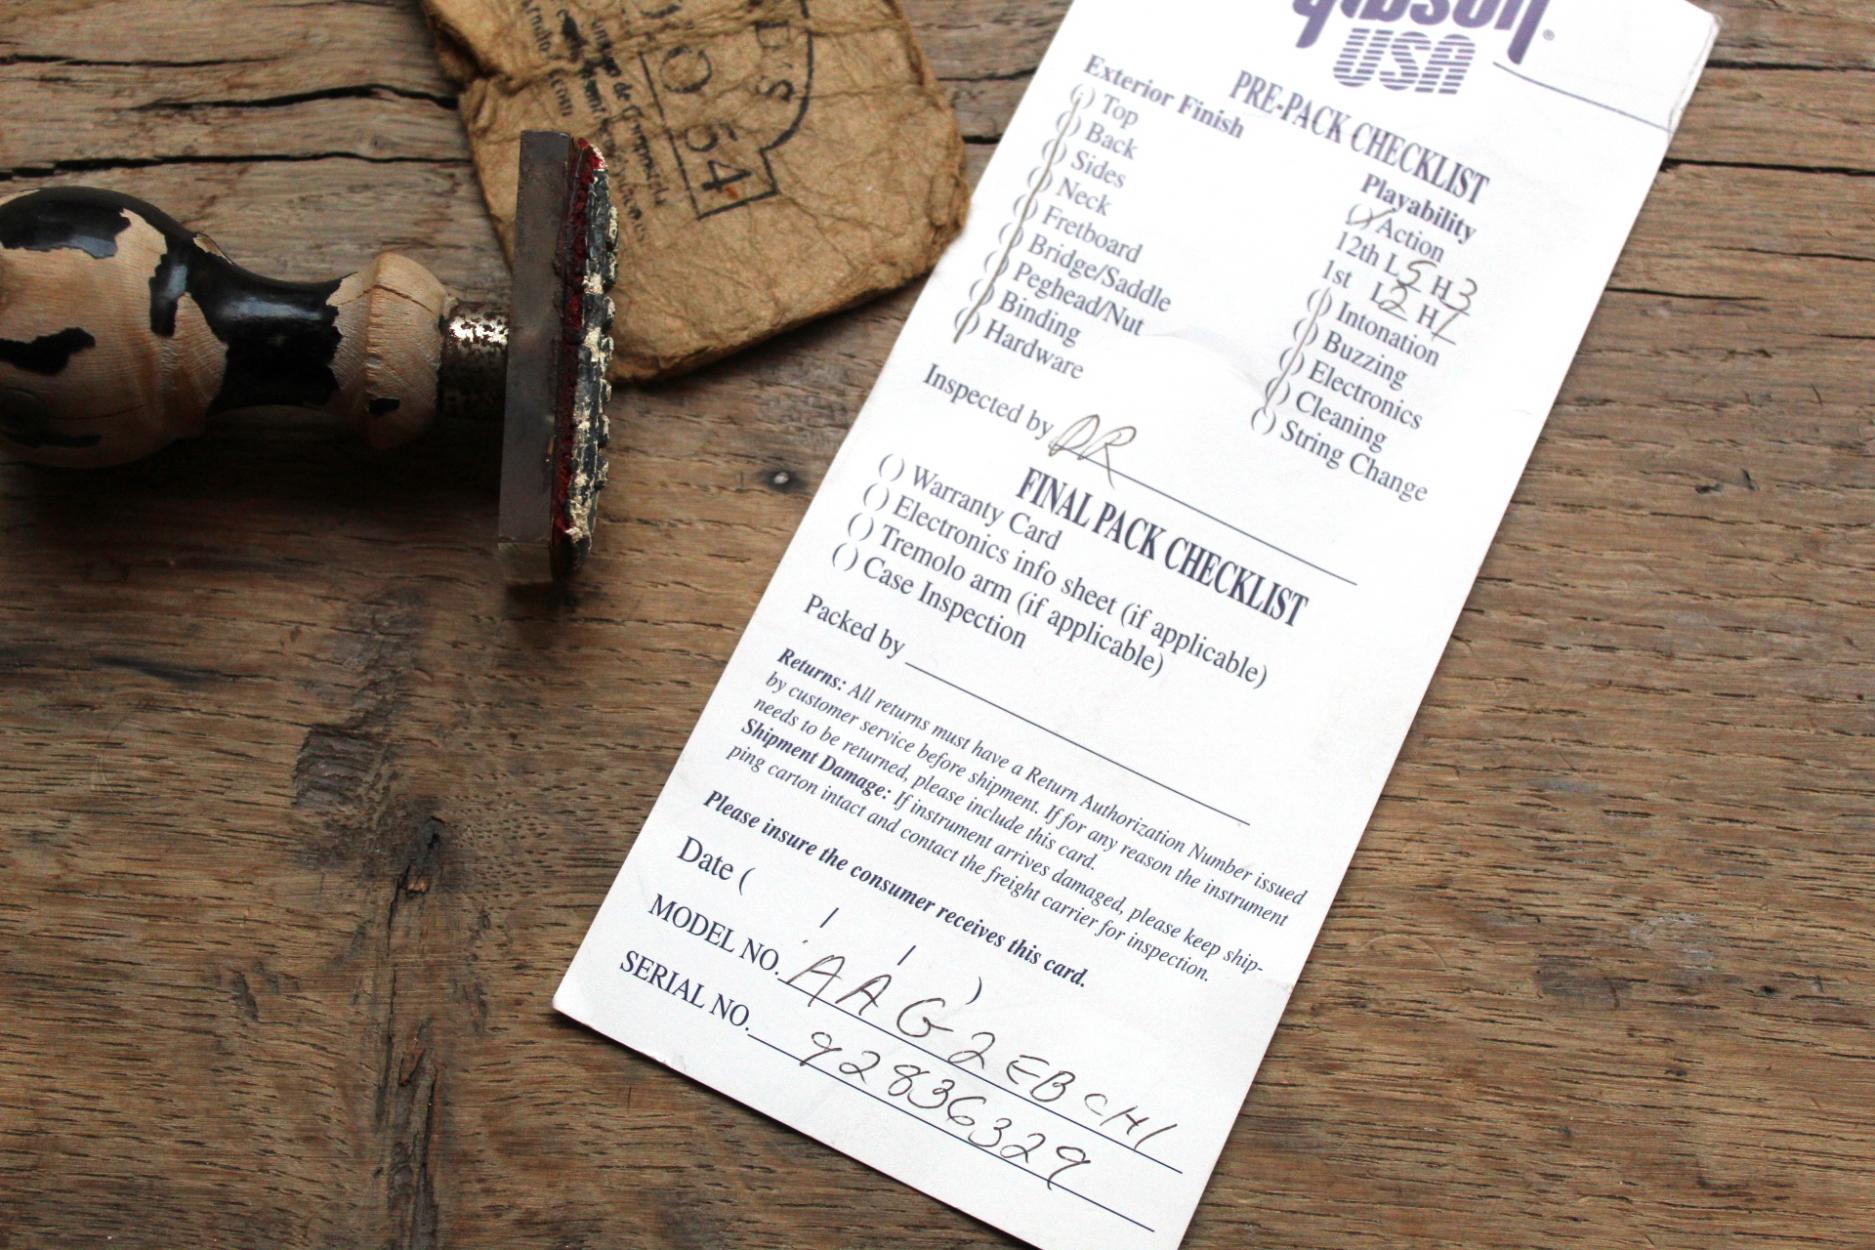 Gibson®
USA
PRE-PACK CHECKLIST
Exterior Finish
( ) Top
( ) Back
( ) Sides
( ) Neck
( ) Fretboard
( ) Bridge/Saddle
( ) Peghead/Nut
( ) Binding
( ) Hardware
Playability
( ) Action
12th L 5 H 3
1st L 2 H 1
( ) Intonation
( ) Buzzing
( ) Electronics
( ) Cleaning
( ) String Change
Inspected by DR
FINAL PACK CHECKLIST
( ) Warranty Card
( ) Electronics info sheet (if applicable)
( ) Tremolo arm (if applicable)
( ) Case Inspection
Packed by
Returns: All returns must have a Return Authorization Number issued
by customer service before shipment. If for any reason the instrument
needs to be returned, please include this card.
Shipment Damage: If instrument arrives damaged, please keep ship-
ping carton intact and contact the freight carrier for inspection.
Please insure the consumer receives this card.
Date ( / / )
MODEL NO. AAG2EBCH1
SERIAL NO. 92836329
D'S
54